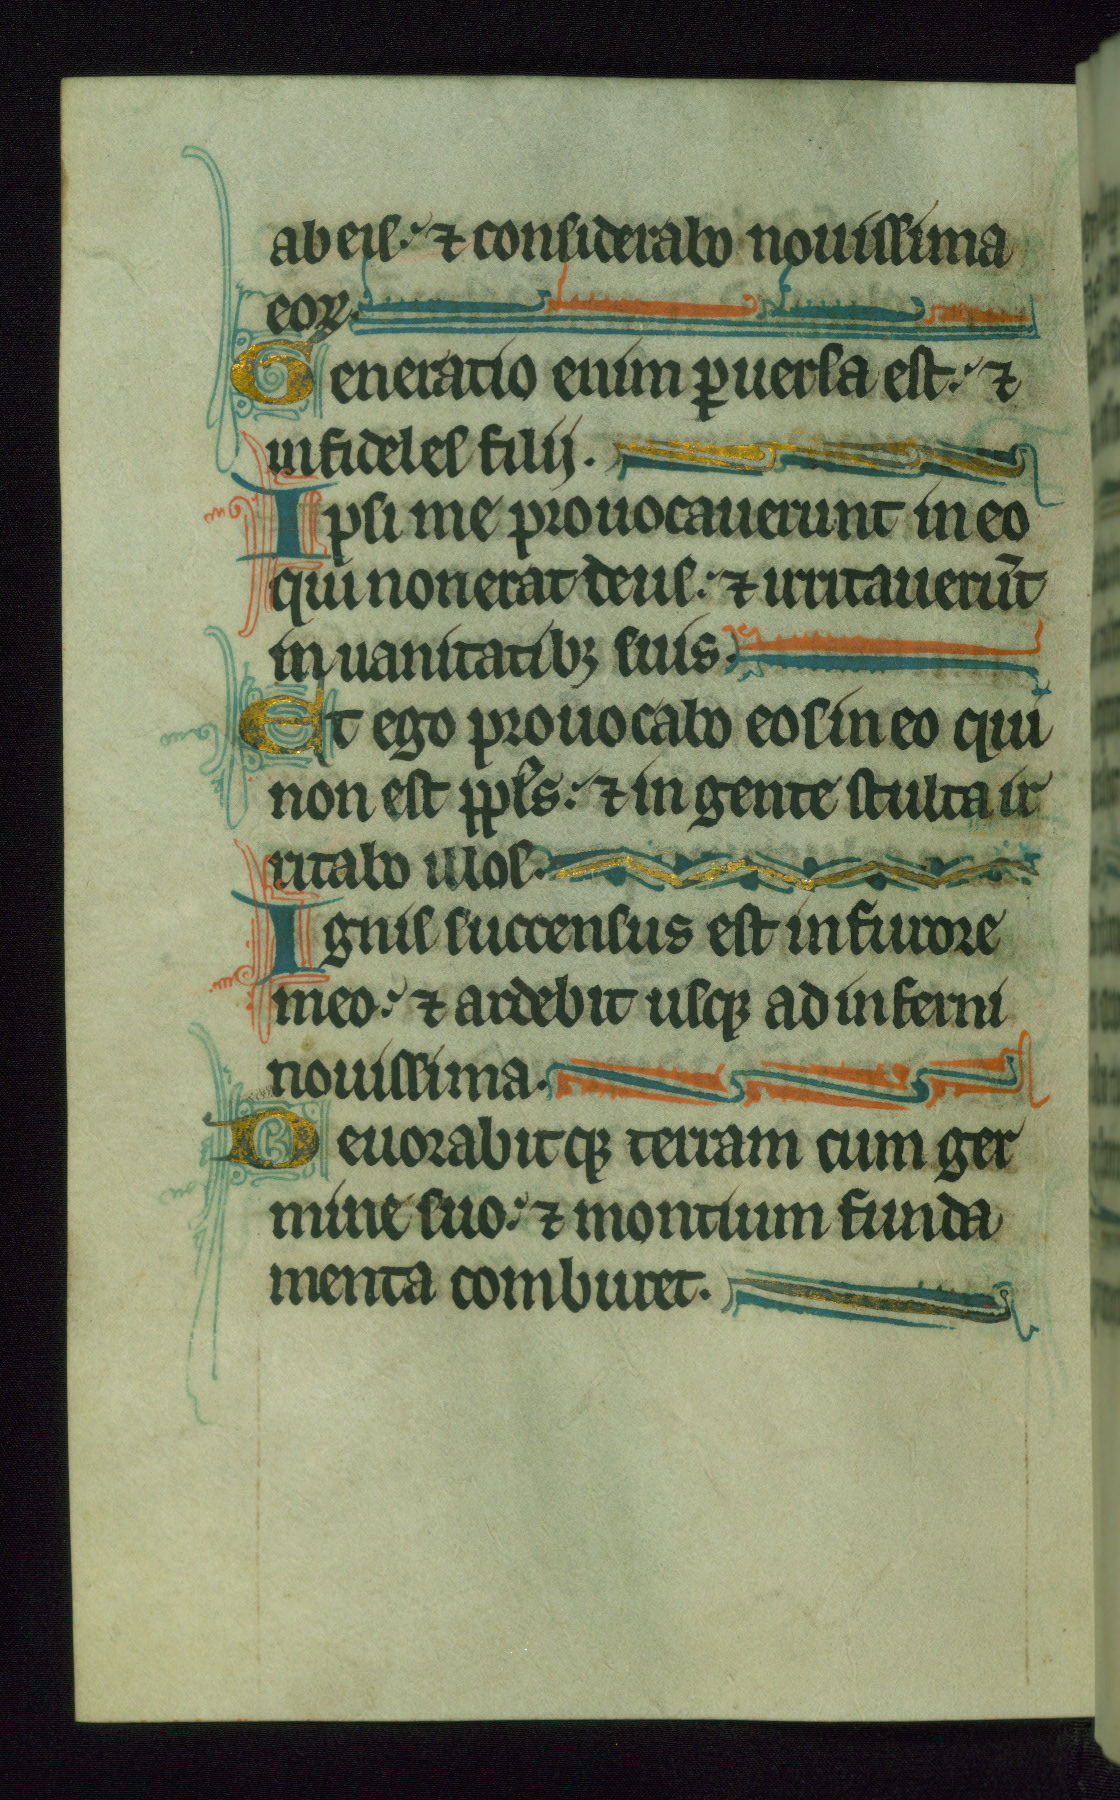 ab eis: ⁊ considerabo nouissima
eoꝝ.
Generatio enim ꝑuersa est: ⁊
infideles filij.
Ipsi me prouocauerunt in eo
qui non erat deus: ⁊ irritauerūt
in uanitatibꝫ suis.
Et ego prouocabo eos in eo qui
non est ppl̃s: ⁊ in gente stulta ir
ritabo illos.
Ignis succensus est in furore
meo: ⁊ ardebit usqꝫ ad inferni
nouissima.
Deuorabitqꝫ terram cum ger
mine suo: ⁊ montium funda
menta comburet.